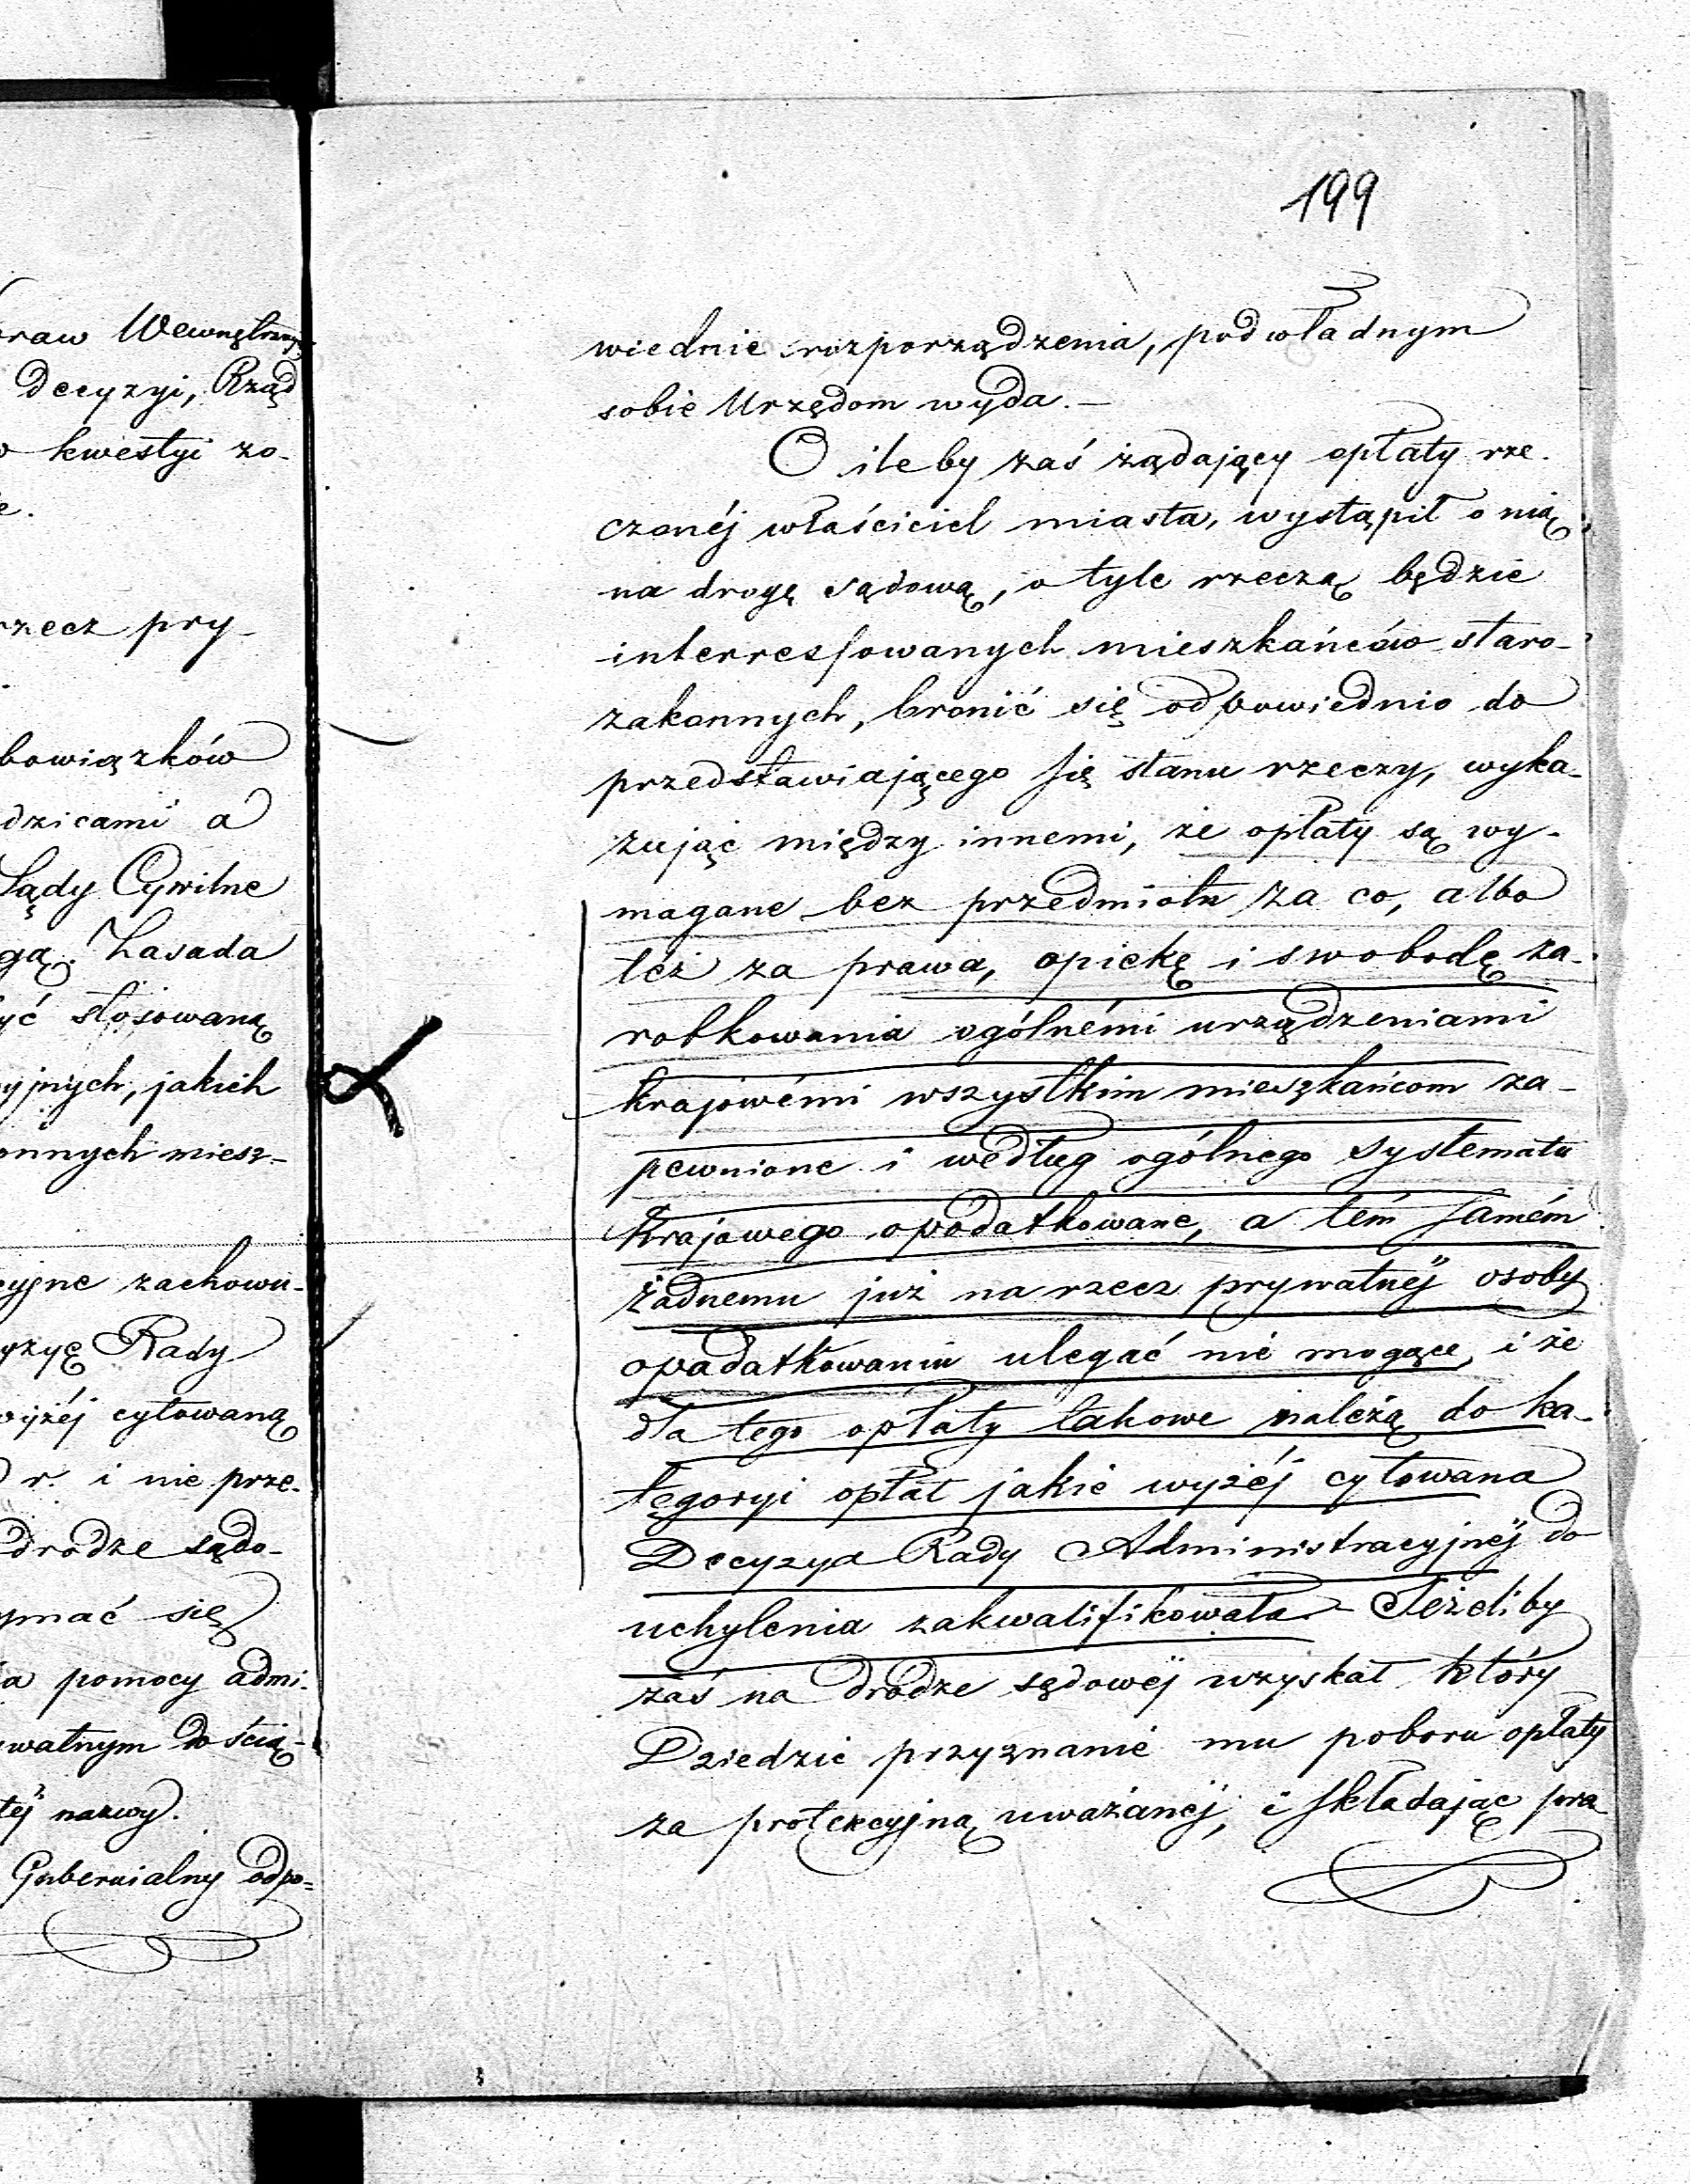 raw Wewnętrzny
Decyzyi, Rząd
kwestyi zo-
e.
rzecz pry-
bowiązków
dzicami a
Sądy Cywilne
gą. Zasada
yć stosowaną
yjnych, jakich
onnych miesz-
cyjne zachowu-
yzyę Rady
wyżéj cytowaną
r. i nie prze-
drodze sądo-
ymać się
a pomocy admi-
watnym do ścią-
téj nazwy.
Gubernialny odpo-
199
wiednie rozporządzenia, podwładnym
sobie Urzędom wyda. —
O ile by zaś żądający opłaty rze-
czonéj właściciel miasta, wystąpił o nią
na drogę sądową, o tyle rzeczą będzie
interressowanych mieszkańców staro-
zakonnych, bronić się odpowiednio do
przedstawiającego się stanu rzeczy, wyka-
zując między innemi, że opłaty są wy-
magane bez przedmiotu za co, albo
też za prawa, opiekę i swobodę za-
robkowania ogólnémi urządzeniami
krajowémi wszystkim mieszkańcom za-
pewnione i według ogólnego systematu
Krajowego opodatkowane, a tém samém
żadnemu już na rzecz prywatnéj osoby
opodatkowaniu ulegać nie mogące, i że
dla tego opłaty takowe należą do ka-
tegoryi opłat jakie wyżéj cytowana
Decyzya Rady Administracyjnéj do
uchylenia zakwalifikowała. — Jeżeliby
zaś na drodze sądowéj uzyskał który
Dziedzic przyznanie mu poboru opłaty
za protekcyjną uważanéj, i składając pra-